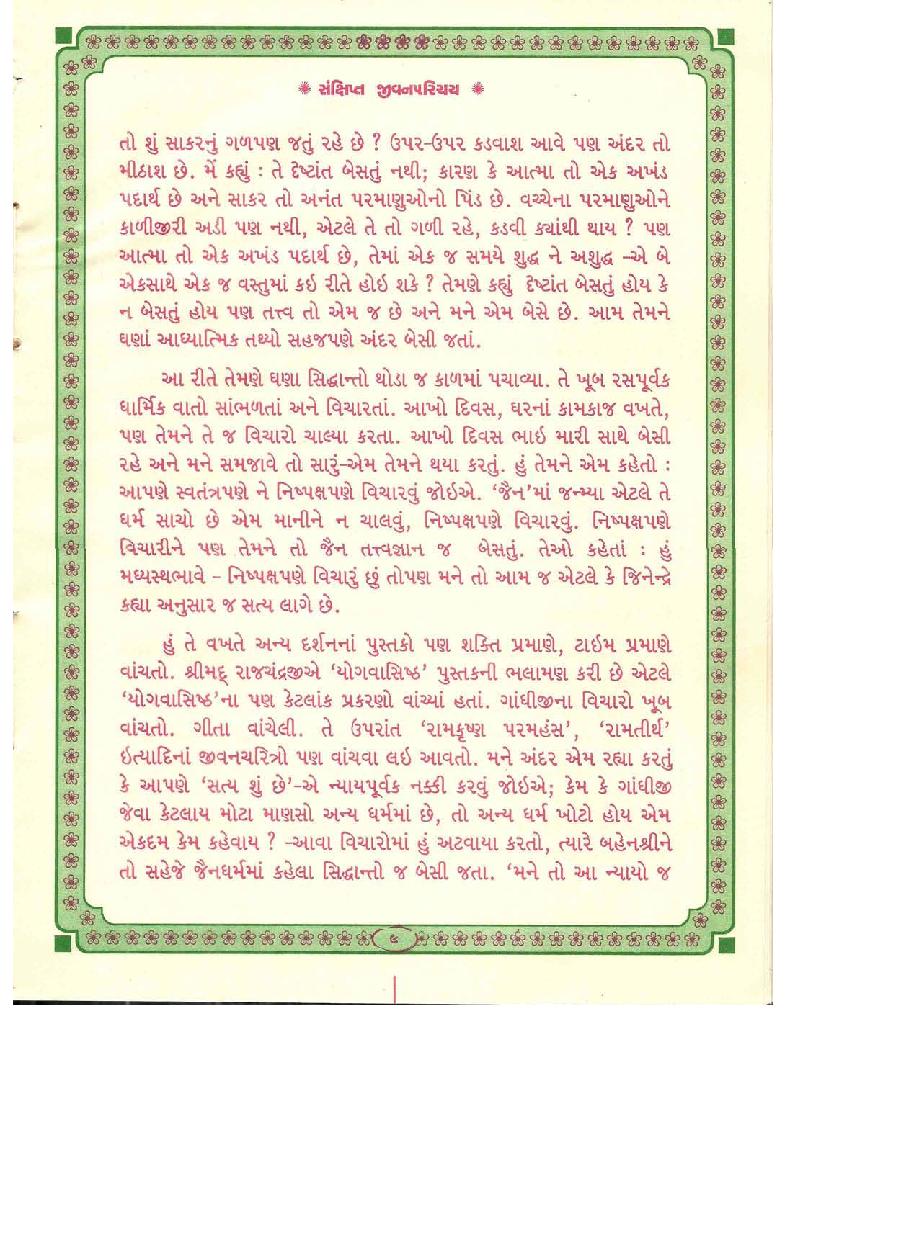 ✺ સંક્ષિપ્ત જીવનપરિચય ✺
તો શું સાકરનું ગળપણ જતું રહે છે ? ઉપર-ઉપર કડવાશ આવે પણ અંદર તો
મીઠાશ છે. મેં કહ્યું : તે દૃષ્ટાંત બેસતું નથી; કારણ કે આત્મા તો એક અખંડ
પદાર્થ છે અને સાકર તો અનંત પરમાણુઓનો પિંડ છે. વચ્ચેના પરમાણુઓને
કાળીજીરી અડી પણ નથી, એટલે તે તો ગળી રહે, કડવી ક્યાંથી થાય ? પણ
આત્મા તો એક અખંડ પદાર્થ છે, તેમાં એક જ સમયે શુદ્ધ ને અશુદ્ધ -એ બે
એકસાથે એક જ વસ્તુમાં કઇ રીતે હોઇ શકે ? તેમણે કહ્યું દૃષ્ટાંત બેસતું હોય કે
ન બેસતું હોય પણ તત્ત્વ તો એમ જ છે અને મને એમ બેસે છે. આમ તેમને
ઘણાં આધ્યાત્મિક તથ્યો સહજપણે અંદર બેસી જતાં.
આ રીતે તેમણે ઘણા સિદ્ધાન્તો થોડા જ કાળમાં પચાવ્યા. તે ખૂબ રસપૂર્વક
ધાર્મિક વાતો સાંભળતાં અને વિચારતાં. આખો દિવસ, ઘરનાં કામકાજ વખતે,
પણ તેમને તે જ વિચારો ચાલ્યા કરતા. આખો દિવસ ભાઇ મારી સાથે બેસી
રહે અને મને સમજાવે તો સારું-એમ તેમને થયા કરતું. હું તેમને એમ કહેતો :
આપણે સ્વતંત્રપણે ને નિષ્પક્ષપણે વિચારવું જોઇએ. ‘જૈન’માં જન્મ્યા એટલે તે
ધર્મ સાચો છે એમ માનીને ન ચાલવું, નિષ્પક્ષપણે વિચારવું. નિષ્પક્ષપણે
વિચારીને પણ તેમને તો જૈન તત્ત્વજ્ઞાન જ બેસતું. તેઓ કહેતાં : હું
મધ્યસ્થભાવે - નિષ્પક્ષપણે વિચારું છું તોપણ મને તો આમ જ એટલે કે જિનેન્દ્રે
કહ્યા અનુસાર જ સત્ય લાગે છે.
હું તે વખતે અન્ય દર્શનનાં પુસ્તકો પણ શક્તિ પ્રમાણે, ટાઇમ પ્રમાણે
વાંચતો. શ્રીમદ્ રાજચંદ્રજીએ ‘યોગવાસિષ્ઠ’ પુસ્તકની ભલામણ કરી છે એટલે
‘યોગવાસિષ્ઠ’ના પણ કેટલાંક પ્રકરણો વાંચ્યાં હતાં. ગાંધીજીના વિચારો ખૂબ
વાંચતો. ગીતા વાંચેલી. તે ઉપરાંત ‘રામકૃષ્ણ પરમહંસ’, ‘રામતીર્થ’
ઇત્યાદિનાં જીવનચરિત્રો પણ વાંચવા લઇ આવતો. મને અંદર એમ રહ્યા કરતું
કે આપણે ‘સત્ય શું છે’-એ ન્યાયપૂર્વક નક્કી કરવું જોઇએ; કેમ કે ગાંધીજી
જેવા કેટલાય મોટા માણસો અન્ય ધર્મમાં છે, તો અન્ય ધર્મ ખોટો હોય એમ
એકદમ કેમ કહેવાય ? -આવા વિચારોમાં હું અટવાયા કરતો, ત્યારે બહેનશ્રીને
તો સહેજે જૈનધર્મમાં કહેલા સિદ્ધાન્તો જ બેસી જતા. ‘મને તો આ ન્યાયો જ